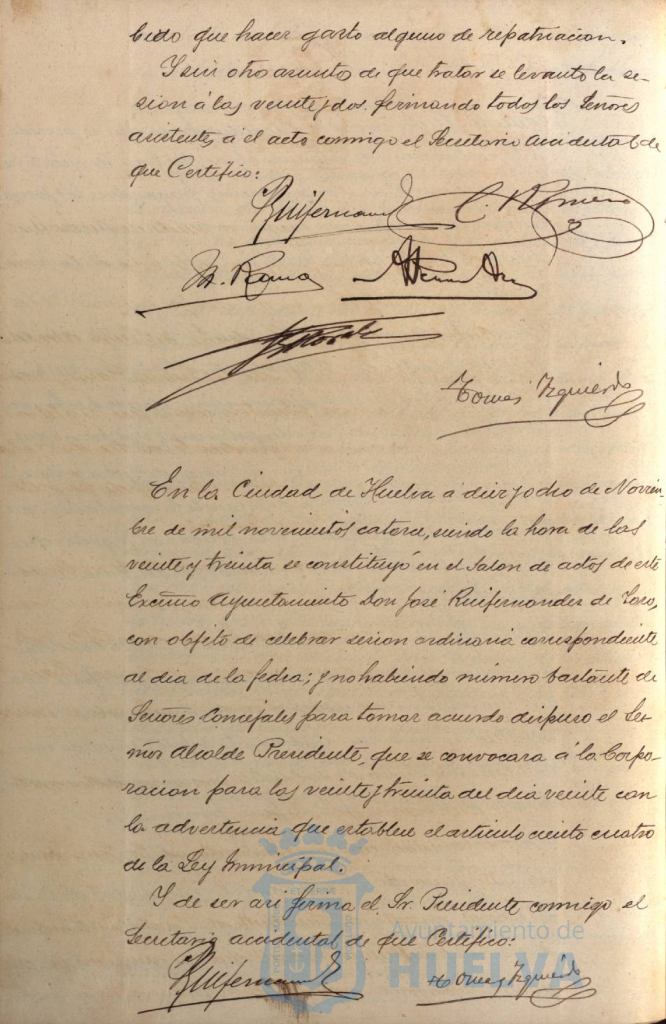 bido que hacer gasto alguno de repatriacion.
Y sin otro asunto de que tratar se levantó la se-
sion á las veinte y dos firmando todos los Señores
asistentes á el acto conmigo el Secretario accidental de
que Certifico:
Ruifernandez C. Romero
M.
Tomas Izquierdo
En la Ciudad de Huelva á diez y ocho de Noviem-
bre de mil novecientos catorce, siendo la hora de las
veinte y treinta se constituyó en el Salon de actos de este
Excmo Ayuntamiento Don José Ruifernandez de Toro,
con objeto de celebrar sesion ordinaria correspondiente
al dia de la fecha; y no habiendo número bastante de
Señores Concejales para tomar acuerdo dispuso el Se-
ñor Alcalde Presidente, que se convocara á la Corpo-
racion para las veinte y treinta del dia veinte con
la advertencia que establece el articulo ciento cuatro
de la Ley Municipal.
Y de ser asi firma el Sr. Presidente conmigo el
Secretario accidental de que Certifico:
Ruifernandez Tomas Izquierdo
Ayuntamiento de
HUELVA